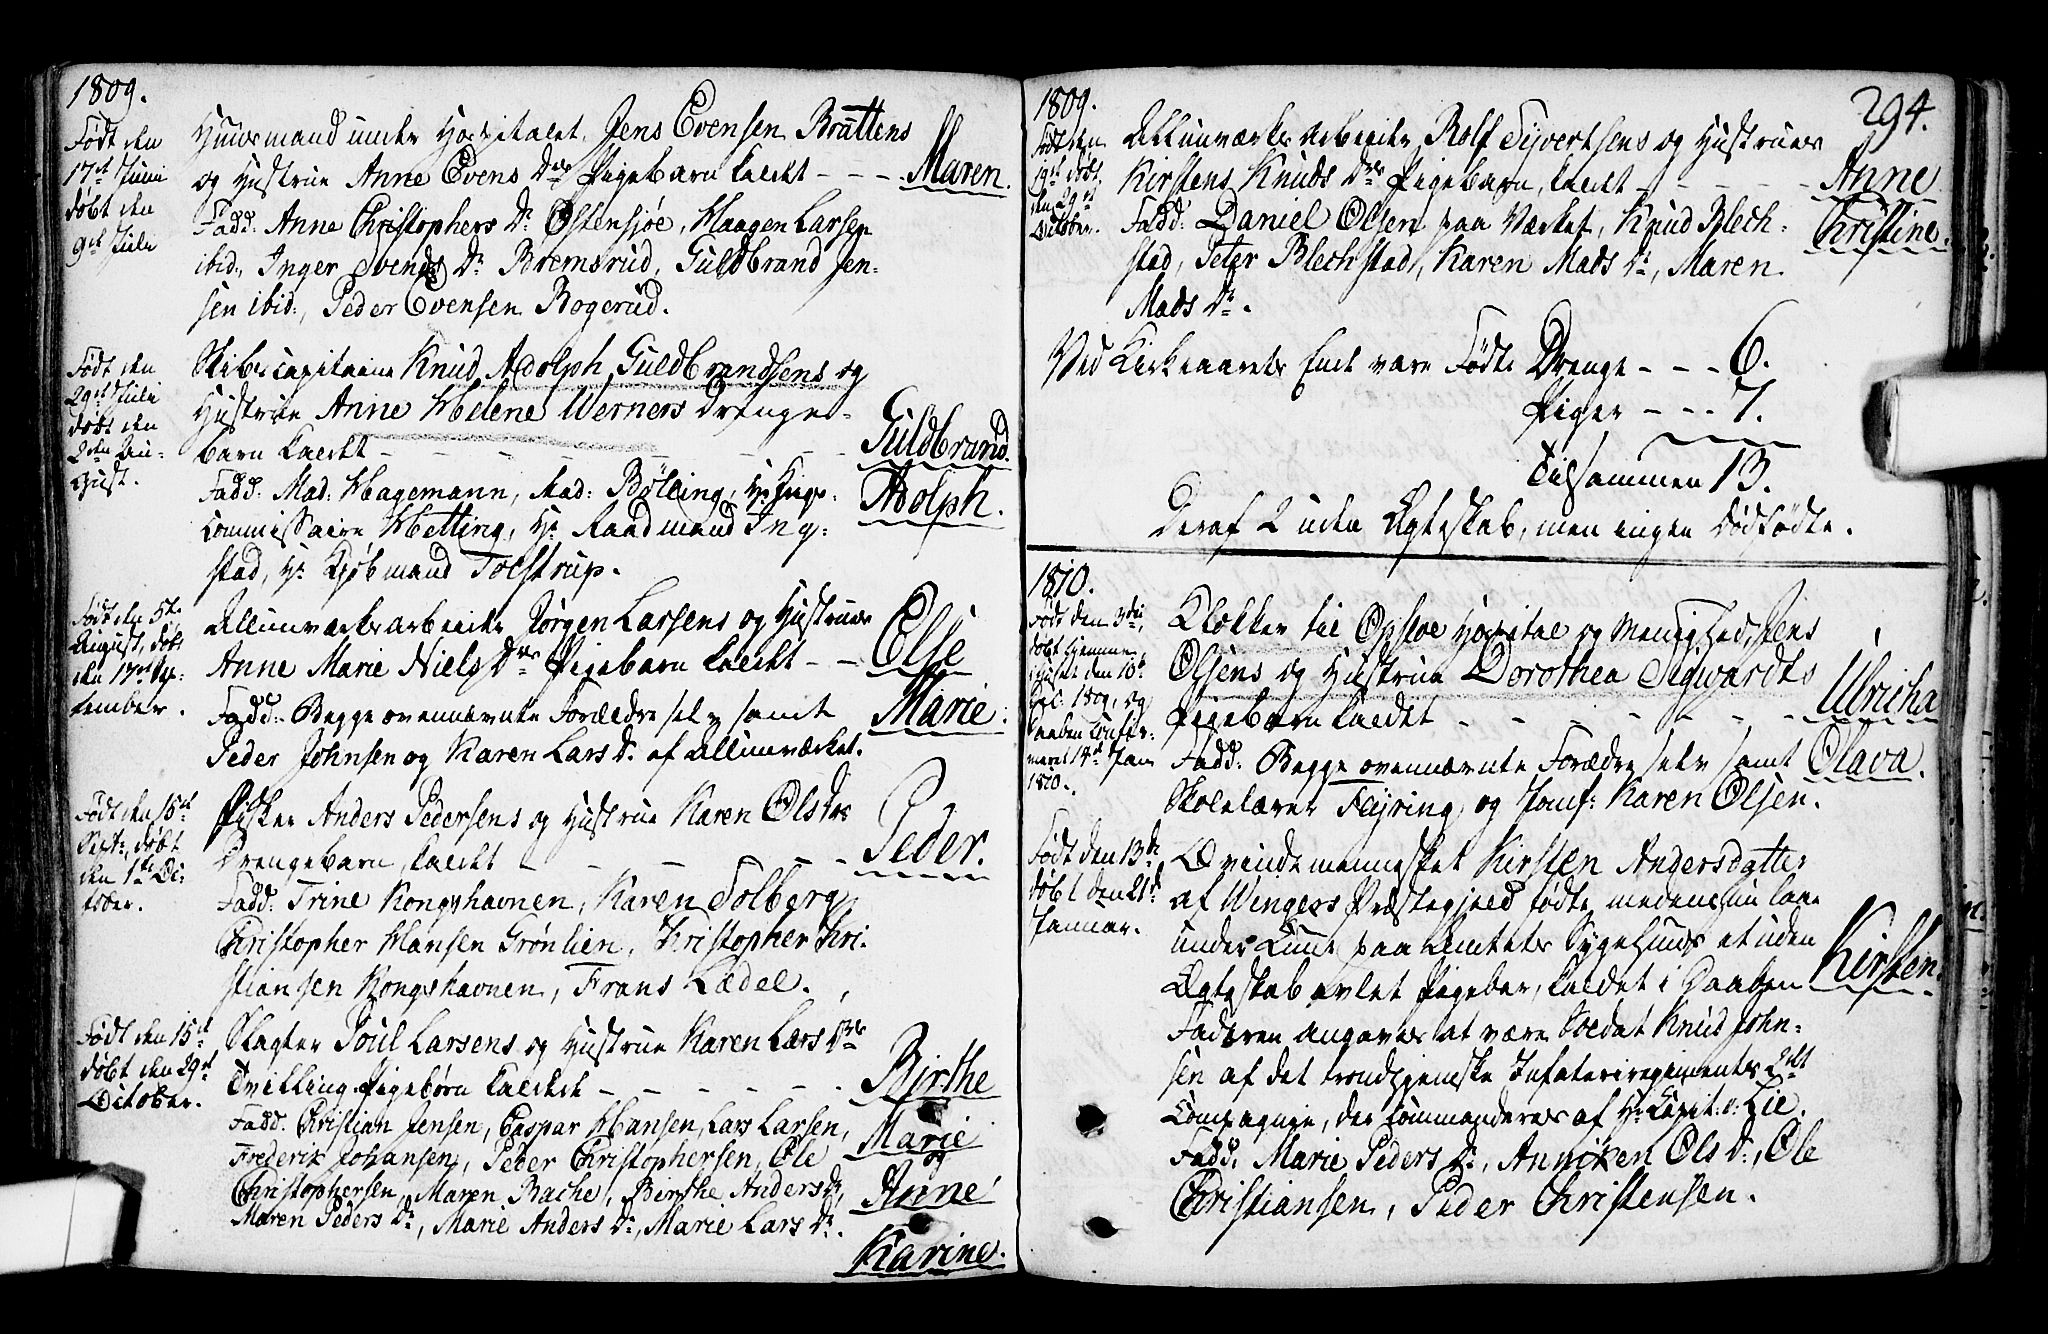 1809.
Født den
17de Juni
døbt den
9de Julii
Huusmand under Hospitalet Jens Evensen Brattens
og Hustrue Anne Evens Drs Pigebarn kaldt - - - Maren.
Fadd: Anne Christophers Dr Østensjøe, Haagen Larsen
ibid:, Inger Svends Dr Bremsrud, Guldbrand Jen-
sen ibid:, Peder Evensen Bogerud.
Født den
29de Julii
døbt den
2den Au-
gust.
Skibscapitaine Knud Adolph Guldbrandsens og
Hustrue Anne Helene Werners Drenge-
barn kaldt - - - - - - Guldbrand
Adolph.
Fadd: Mad: Hagemann, Mad: Bølling, Hr Krigs-
commissaire Hetting, Hr Raadmand Ing-
stad, Hr Kjøbmand Tolstrup.
Født den 5te
August, døbt
den 17de Sep-
tember.
Allunværksarbeider Jørgen Larsens og Hustrues
Anne Marie Niels Drs Pigebarn kaldt - - Else
Marie.
Fadd: Begge ovennævnte Forældre selv samt
Peder Johnsen og Karen Lars Dr af Allunværket.
Født den 15de
Septr, døbt
den 1ste Oc-
tober.
Fisker Anders Pedersens og Hustrue Karen Ols Drs
Drengebarn, kaldt - - - - - Peder.
Fadd: Trine Kongshavnen, Karen Solberg,
Christopher Hansen Grønlien, Christopher Chri-
stiansen Kongshavnen, Frans Lædel.
Født den 15de
døbt den 29de
October.
Slagter Poul Larsens og Hustrue Karen Lars Drs
Tvilling Pigebørn kaldet - - - - - Birthe
Marie
og
Anne
Karine.
Fadd. Christian Jensen, Caspar Hansen, Lars Larsen,
Frederik Johansen, Peder Christophersen, Ole
Christophersen, Maren Bache, Birthe Anders Dr,
Maren Peders Dr, Marie Anders Dr, Marie Lars Dr.
294.
1809.
Født den
19de døbt
den 29de
October.
Allunværks arbeider Rolf Syvertsens og Hustrues
Kirstens Knuds Drs Pigebarn, kaldt - - - - - Anne
Christine.
Fadd: Daniel Olsen paa Værket, Knud Blech-
stad, Peter Blechstad, Karen Mads Dr, Maren
Mads Dr.
Ved Kirkeaarets Ende vare Fødte Drenge - - - 6.
Piger - - - 7.
Tilsammen 13.
Deraf 2 uden Ægteskab, men ingen Dødfødte.
1810.
Født den 3die,
døbt hjemme
i Huset den 10de
Dec: 1809, og
Daaben Confir-
meret 14de Jan
1810.
Klokker til Opsloe Hospital og Menighed, Jens
Olsens og Hustrue Dorothea Sigwardts
Pigebarn kaldet - - - - - - - Ulricha
Olava.
Fadd: Begge ovennævnte Forældre selv samt
Skolelærer Fejring, og Jomf: Karen Olsen.
Født den 13de
døbt den 21de
Januar.
Qvindemennesket Kirsten Andersdatter
af Wingers Præstegjeld fødte, medens hun laae
under Cuur paa Amtets Sygehuus et uden
Ægteskab avlet Pigebarn, kaldet i Daaben Kirsten.
Faderen angaves at være Soldat Knud John-
sen af det trondhjemske Infanterieregiments 2det
Compagnie, der commanderes af Hr Capit: v: Lie.
Fadd. Marie Peders Dr, Anniken Ols Dr, Ole
Christiansen, Peder Christensen.